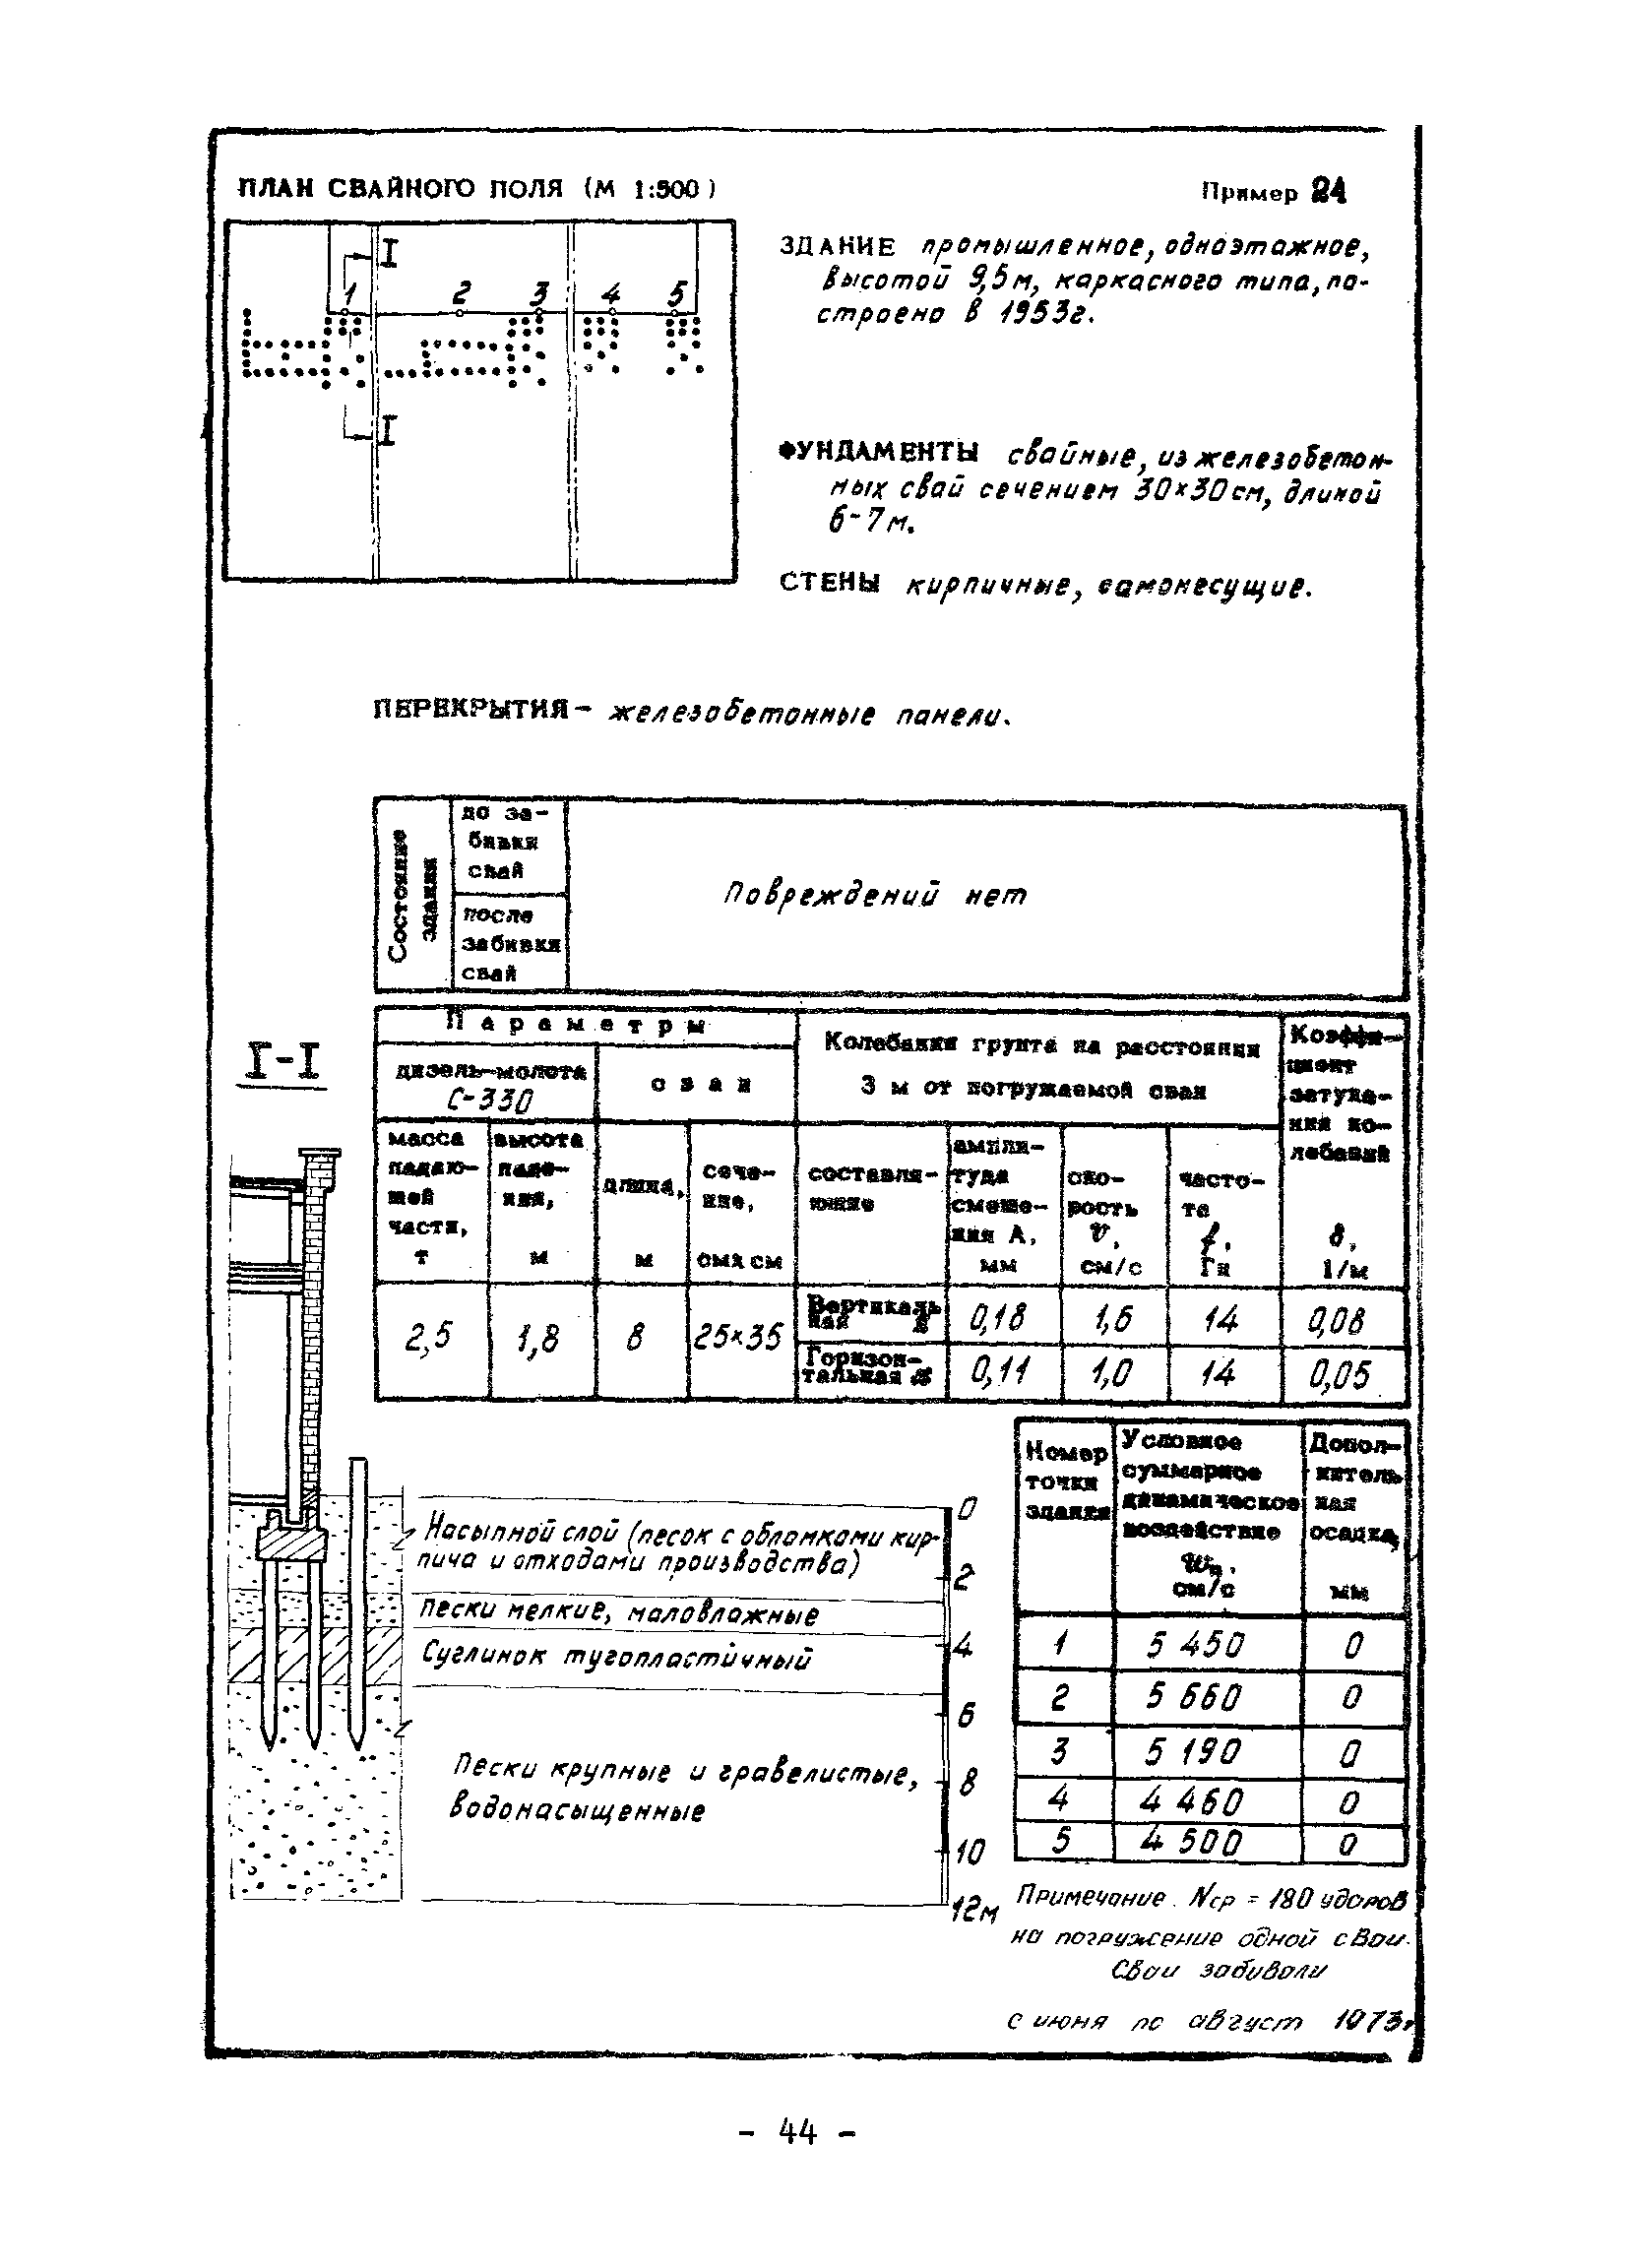 ПЛАН СВАЙНОГО ПОЛЯ (М 1:500)
Пример 24
I
1 2 3 4 5
I
ЗДАНИЕ промышленное, одноэтажное,
высотой 9,5м, каркасного типа, по-
строено в 1953г.
ФУНДАМЕНТЫ свайные, из железобетон-
ных свай сечением 30×30см, длиной
6-7м.
СТЕНЫ кирпичные, самонесущие.
ПЕРЕКРЫТИЯ - железобетонные панели.
Состояние
здания
до за-
бивки
свай
после
забивки
свай
Повреждений нет
Параметры
дизель-молота
С-330
сваи
Колебания грунта на расстоянии
3 м от погружаемой сваи
Коэффи-
циент
затуха-
ния ко-
лебаний
δ,
1/м
масса
падаю-
щей
части,
т
высота
паде-
ния,
м
длина,
м
сече-
ние,
смхсм
составля-
ющие
ампли-
туда
смеще-
ния А,
мм
ско-
рость
v,
см/с
часто-
та
f,
Гц
2,5 1,8 8 25×35
Вертикаль
ная z 0,18 1,6 14 0,08
Горизон-
тальная x 0,11 1,0 14 0,05
I-I
Насыпной слой (песок с обломками кир-
пича и отходами производства)
Пески мелкие, маловлажные
Суглинок тугопластичный
Пески крупные и гравелистые,
водонасыщенные
0
2
4
6
8
10
12м
Номер
точки
здания
Условное
суммарное
динамическое
воздействие
см/с
Допол-
нитель
ная
осадка,
мм
1 5 450 0
2 5 660 0
3 5 190 0
4 4 460 0
5 4 500 0
Примечание. Nср = 180 ударов
на погружение одной сваи.
Сваи забивали
с июня по август 1973г
- 44 -